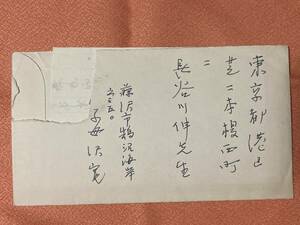 東京都港区
芝二本榎西町
二
長谷川伸先生
藤沢市鵠沼海岸
六三五〇
子母沢寛